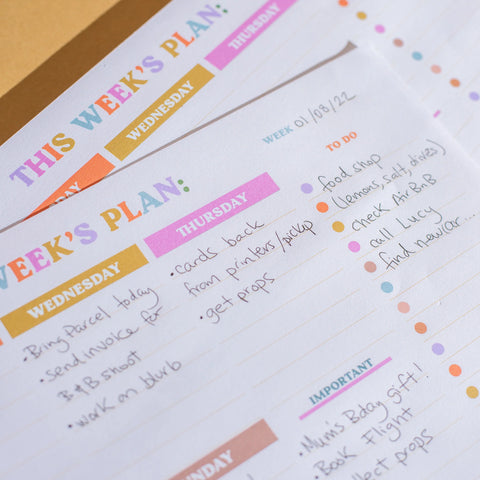 THIS WEEK'S PLAN:
WEDNESDAY
THURSDAY
WEEK'S PLAN:
WEEK 01/08/22
WEDNESDAY
• Bring Parcel today
• send invoice for
B&B shoot
• work on blurb
THURSDAY
• cards back
from printers/pickup
• get props
TO DO
food shop
(lemons, salt, olives)
check AirBnB
call Lucy
find new car...
IMPORTANT
• Mum's Bday gift!
• Book Flight
props